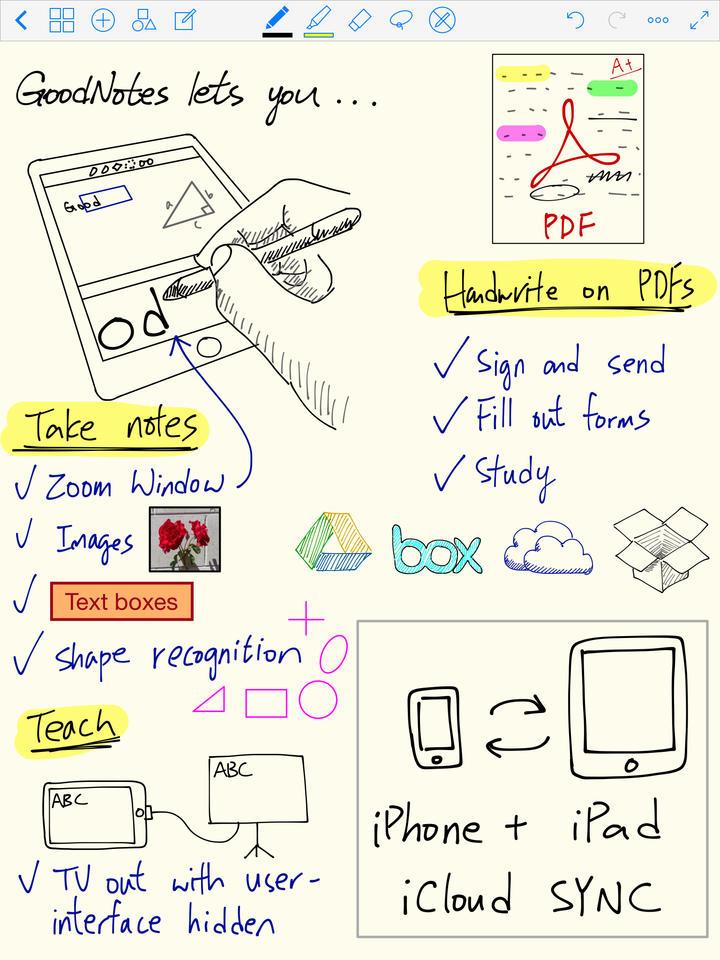 GoodNotes lets you...
A+
PDF
Good
a
b
c
od
Handwrite on PDFs
✓ Sign and send
✓ Fill out forms
✓ Study
Take notes
✓ Zoom Window
✓ Images
✓ Text boxes
✓ shape recognition
box
Teach
ABC
ABC
✓ TV out with user-
interface hidden
iPhone + iPad
iCloud SYNC